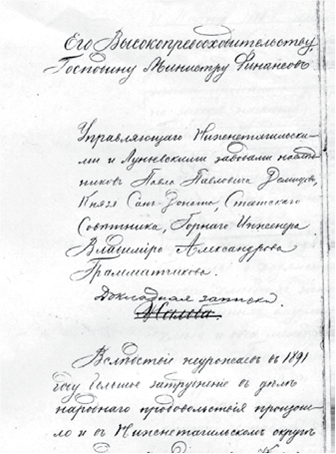 Его Высокопревосходительству,
Господину Министру Финансовъ
Управляющаго Нижнетагильски-
ми и Луньевскими заводами наслѣд-
никовъ Павла Павловича Демидова,
Князя Санъ-Донато, Статскаго
Совѣтника, Горнаго Инженера
Владиміра Александрова
Грамматчикова.
Докладная записка.
Жалоба.
Вслѣдствіе неурожаевъ въ 1891
году большое затрудненіе въ дѣлѣ
народнаго продовольствія произош-
ло и въ Нижнетагильскомъ округѣ